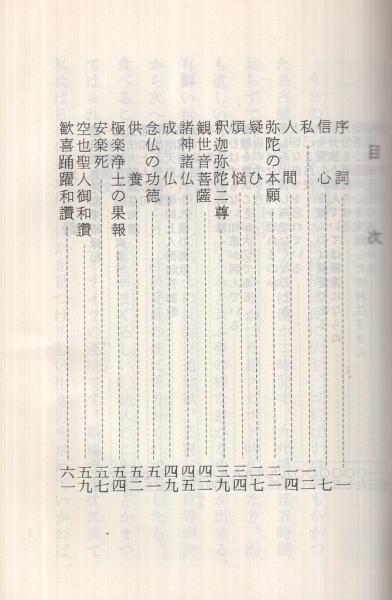 目次
序詞 一
信心 七
私 一二
人間 一四
弥陀の本願 二一
疑ひ 二七
煩悩 三四
釈迦弥陀二尊 三九
観世音菩薩 四二
諸神諸仏 四五
成仏 四九
念仏の功徳 五一
供養 五二
極楽浄土の果報 五四
安楽死 五七
空也聖人御和讃 五九
歓喜踊躍和讃 六一